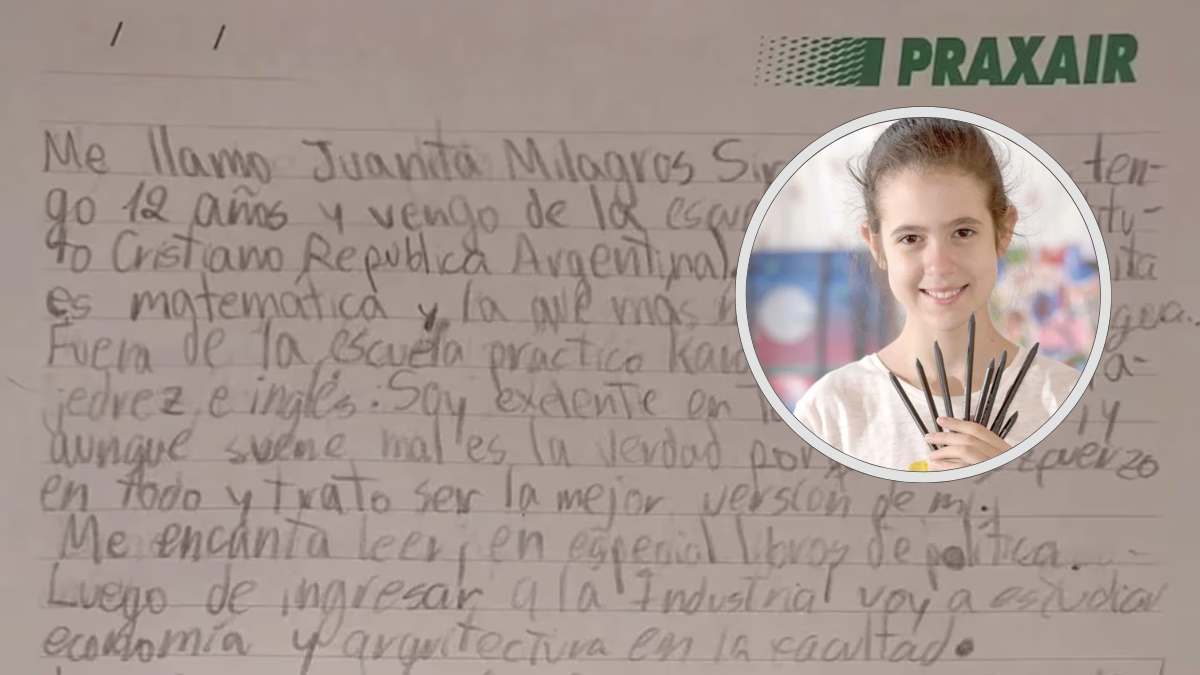 PRAXAIR
Me llamo Juanita Milagros Sir ten-
go 12 años y vengo de la escu tu-
to Cristiano Republica Argentina ita
es matematica y la que mas
Fuera de la escuela practico Kara a-
jedrez e inglés. Soy exelente en y
aunque suene mal es la verdad por
en todo y trato ser la mejor version de mi.
Me encanta leer, en espesial libros de politica.
Luego de ingresar a la Industrial voy a estudiar
economía y arquitectura en la facultad.